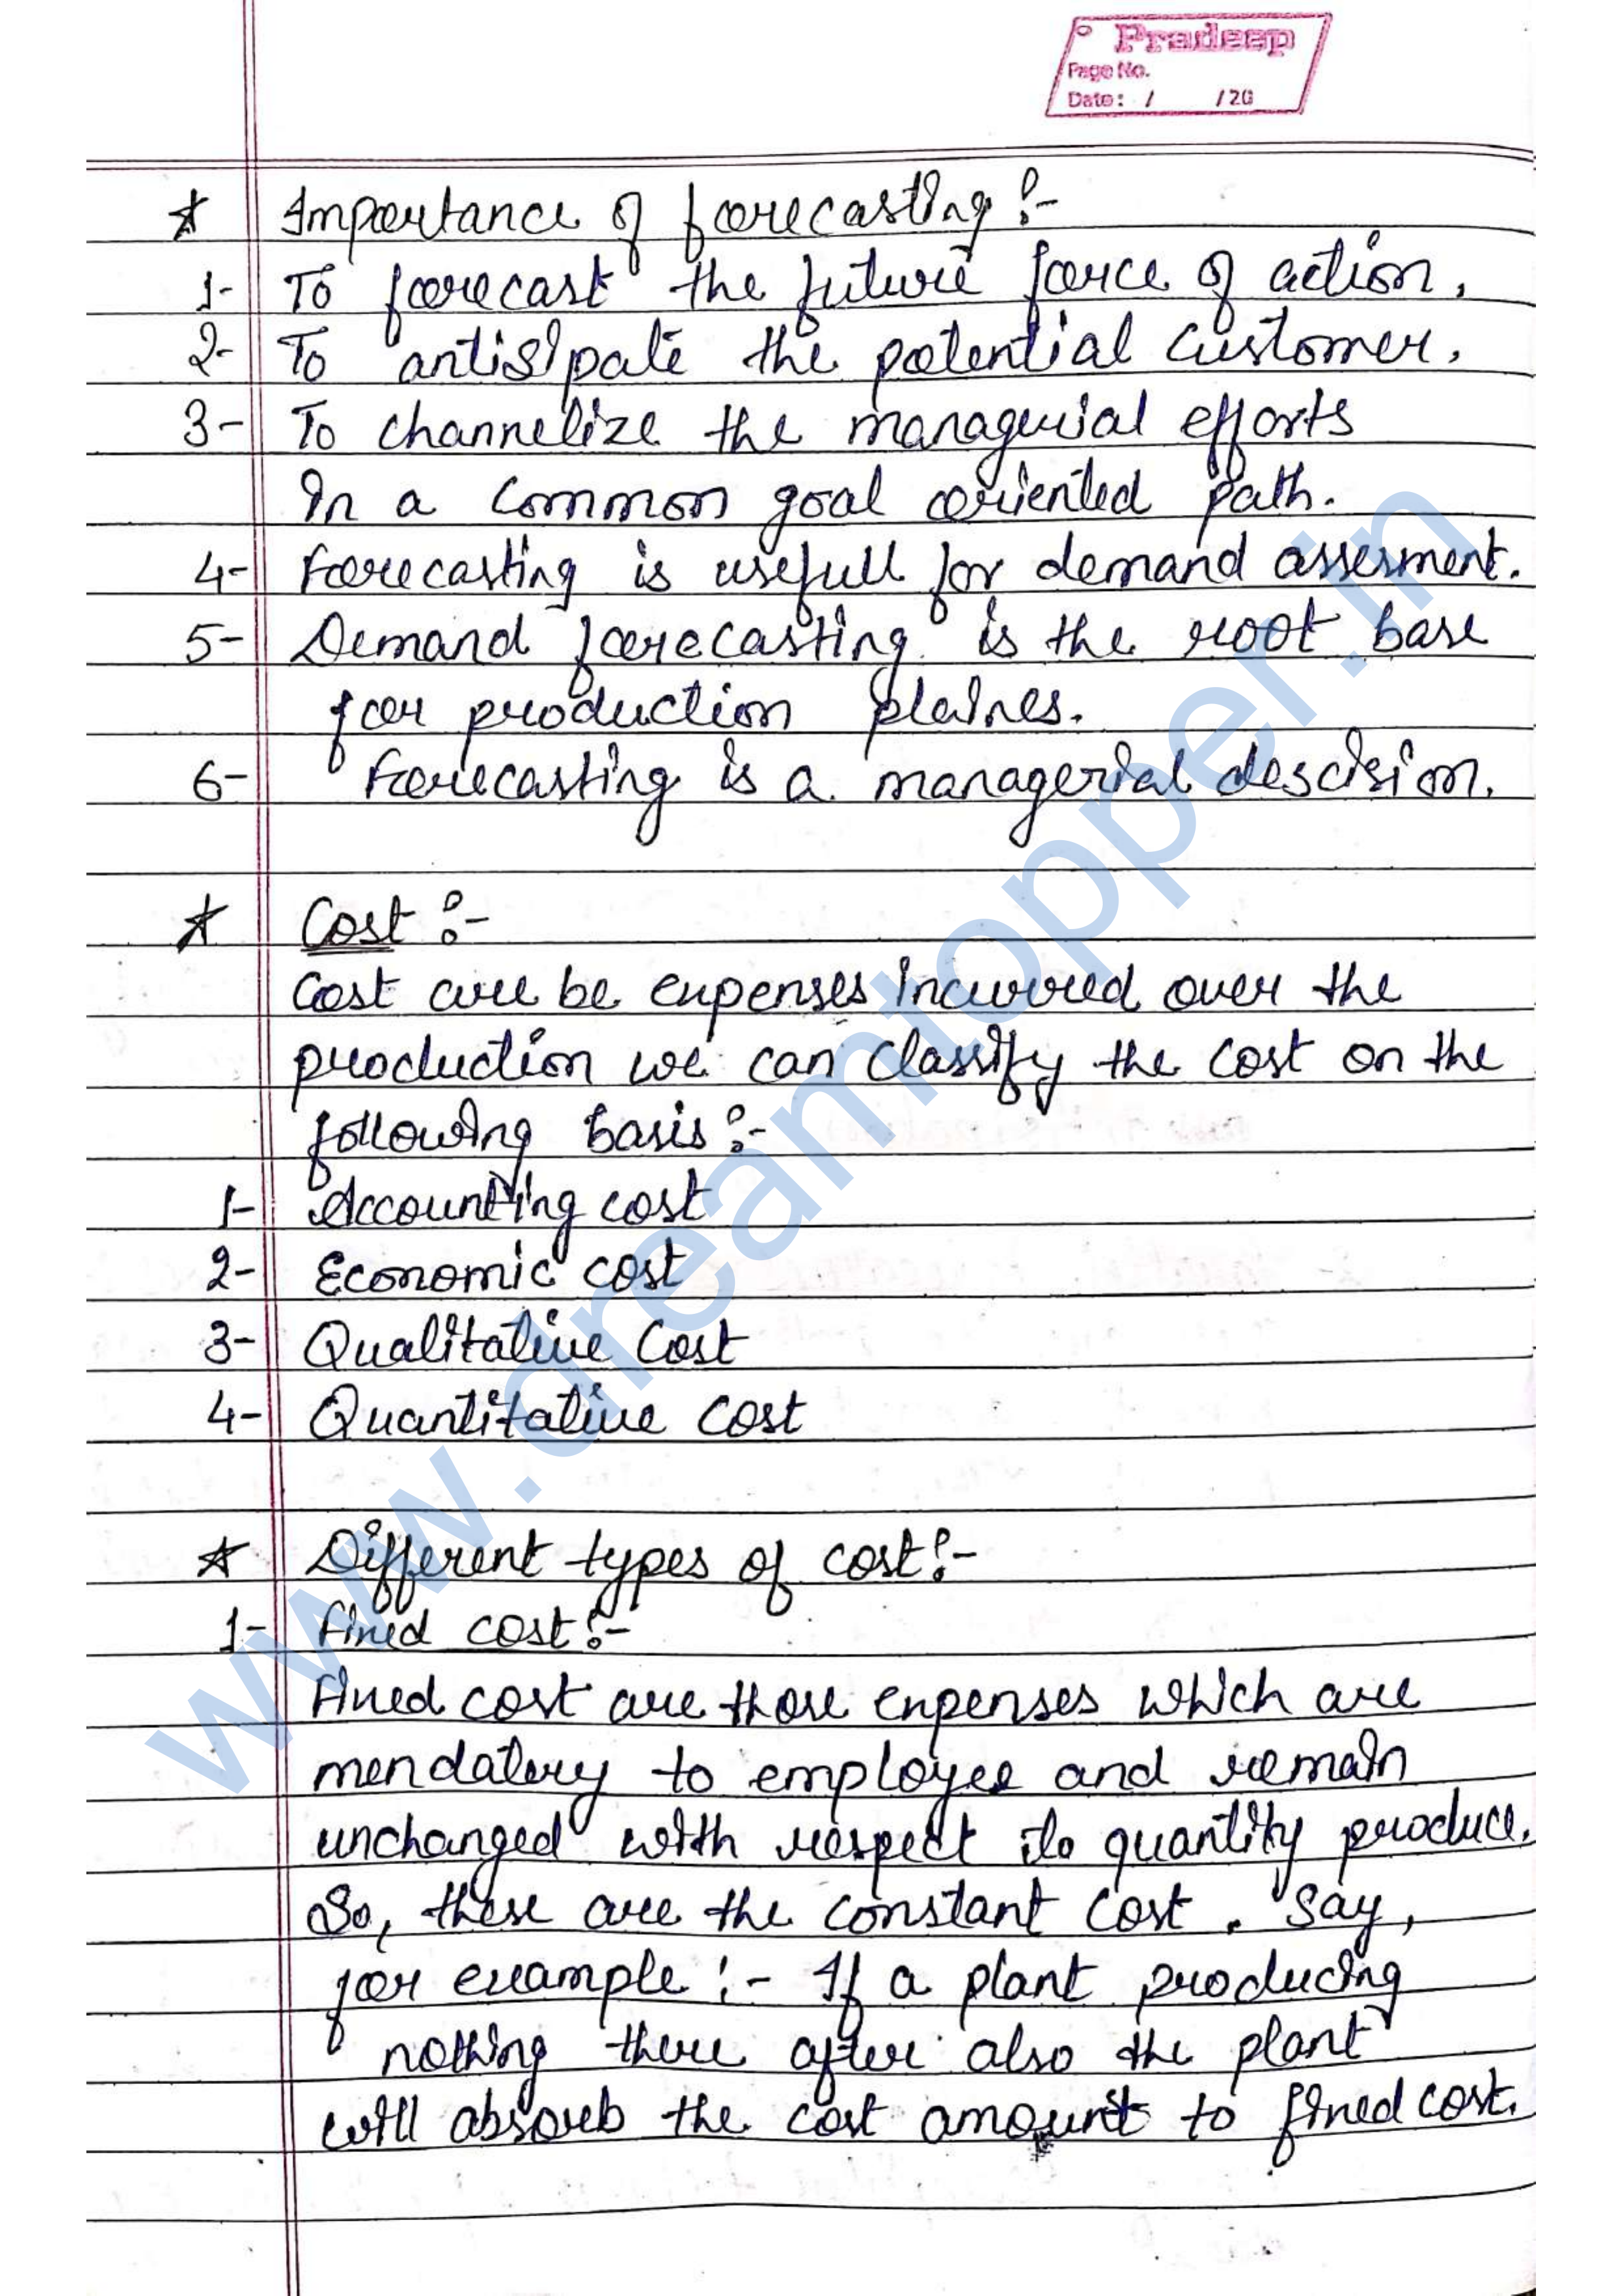 Pradeep
Page No.
Date: / /20
☆ Importance of forecasting :-
1- To forecast the future force of action.
2- To antisipate the potential customer.
3- To channelize the managerial efforts
In a common goal oriented path.
4- Forecasting is usefull for demand assesment.
5- Demand forecasting is the root base
for production plaines.
6- Forecasting is a managerial descision.
☆ Cost :-
Cost are be expenses incurred over the
production we can classify the cost on the
following basis :-
1- Accounting cost
2- Economic cost
3- Qualitative Cost
4- Quantitative cost
☆ Different types of cost :-
1- Fixed cost :-
Fixed cost are those expenses which are
mendatory to employee and remain
unchanged with respect to quantity produce.
So, these are the constant cost. Say,
for example :- If a plant producing
nothing there after also the plant
will absorb the cost amount to fixed cost.
www.dreamtopper.in